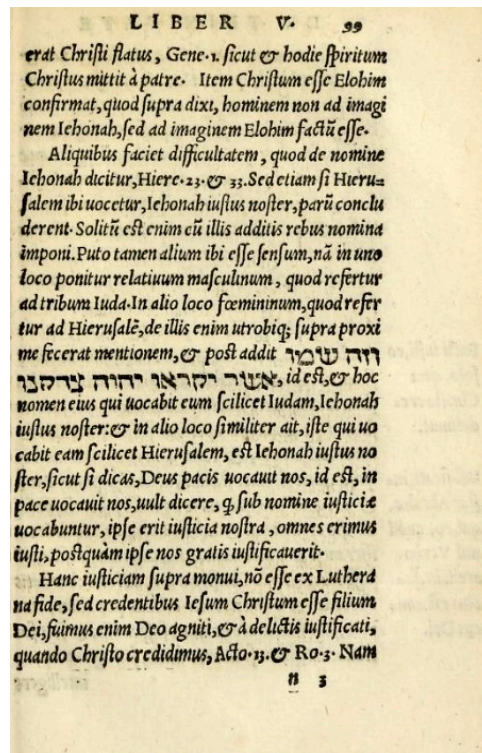 LIBER V. 99
erat Christi flatus, Gene.1. sicut & hodie spiritum
Christus mittit à patre. Item Christum esse Elohim
confirmat, quod supra dixi, hominem non ad imagi
nem Iehonah, sed ad imaginem Elohim factũ esse.
Aliquibus faciet difficultatem, quod de nomine
Iehonah dicitur, Hiere.23. & 33. Sed etiam si Hieru-
salem ibi uocetur, Iehonah iustus noster, parũ conclu
derent. Solitũ est enim cũ illis additis rebus nomina
imponi. Puto tamen alium ibi esse sensum, nã in uno
loco ponitur relatiuum masculinum, quod refertur
ad tribum Iuda. In alio loco fœmininum, quod refer
tur ad Hierusalẽ, de illis enim utrobiq; supra proxi
me fecerat mentionem, & post addit וזה שמו
אשר יקראו יהוה צדקנו, id est, & hoc
nomen eius qui uocabit eum scilicet Iudam, Iehonah
iustus noster: & in alio loco similiter ait, iste qui uo
cabit eam scilicet Hierusalem, est Iehonah iustus no
ster, sicut si dicas, Deus pacis uocauit nos, id est, in
pace uocauit nos, uult dicere, q̃ sub nomine iusticiæ
uocabuntur, ipse erit iusticia nostra, omnes erimus
iusti, postquàm ipse nos gratis iustificauerit.
Hanc iusticiam supra monui, nõ esse ex Luthera
na fide, sed credentibus Iesum Christum esse filium
Dei, fuimus enim Deo agniti, & à delictis iustificati,
quando Christo credidimus, Acto.13. & Ro.3. Nam
n 3